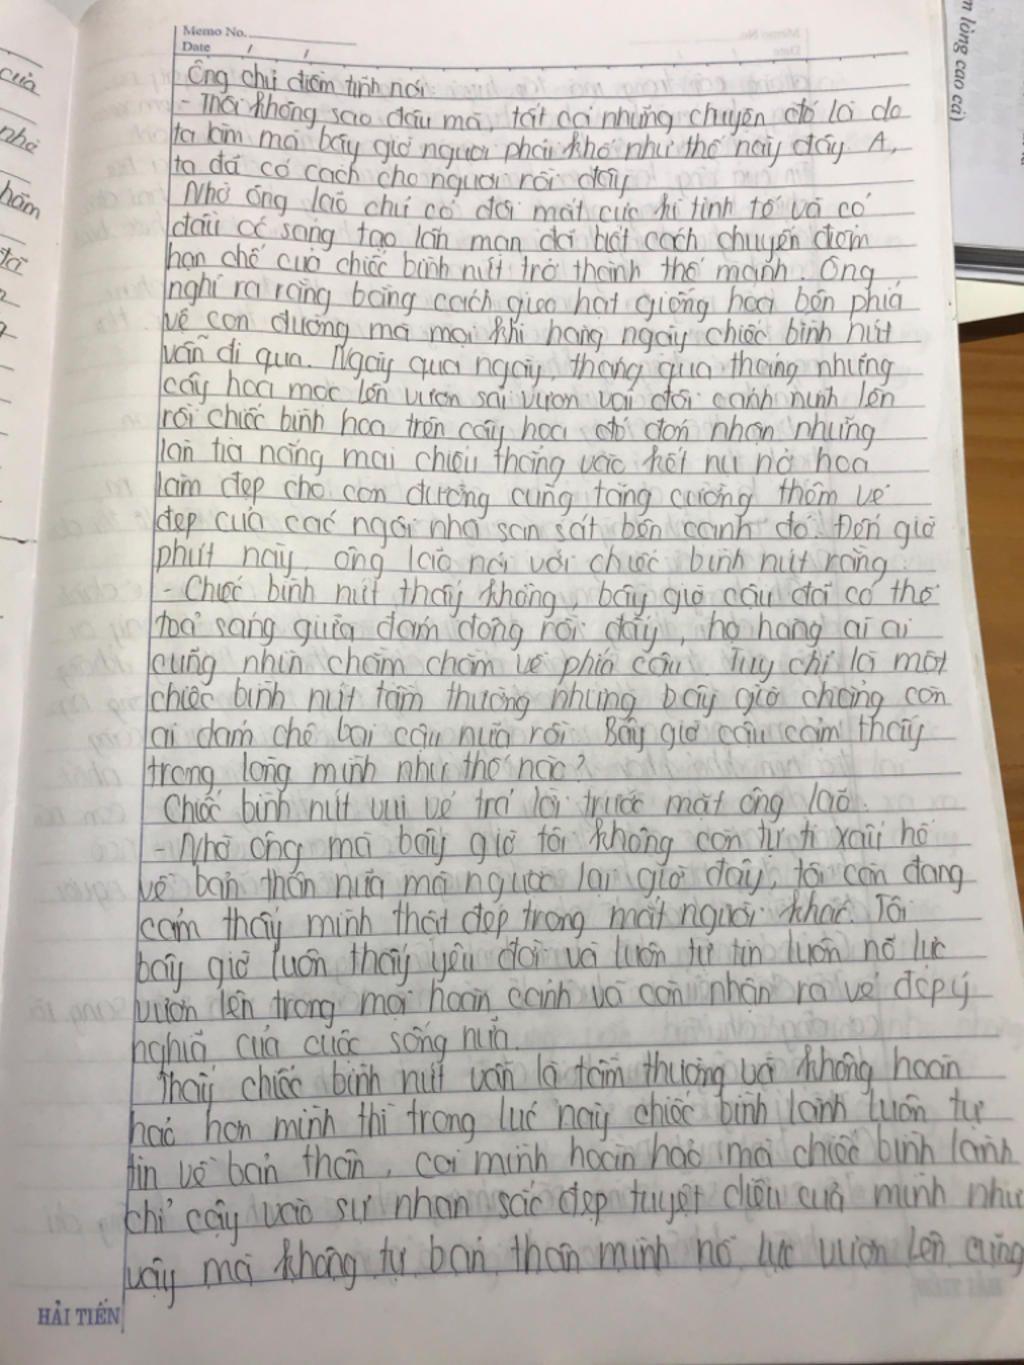 Memo No.
Date / /
Ông chủ điềm tĩnh nói
- Thôi không sao đâu mà, tất cả những chuyện đó là do
ta làm mà bây giờ ngươi phải khổ như thế này đấy. A,
ta đã có cách cho ngươi rồi đây
Nhờ ông lão chủ có đôi mắt cực kì tinh tế và có
đầu óc sáng tạo lãn mạn đã biết cách chuyển điểm
hạn chế của chiếc bình nứt trở thành thế mạnh. Ông
nghĩ ra rằng bằng cách gieo hạt giống hoa bên phía
về con đường mà mọi khi hàng ngày chiếc bình nứt
vẫn đi qua. Ngày qua ngày, tháng qua tháng những
cây hoa mọc lên vươn sải vươn vai đôi cánh mình lên
rồi chiếc bình hoa trên cây hoa đó đón nhận những
làn tia nắng mai chiếu thẳng vào kết nụ nở hoa
làm đẹp cho con đường cũng tăng cường thêm vẻ
đẹp của các ngôi nhà san sát bên cạnh đó. Đến giờ
phút này, ông lão nói với chiếc bình nứt rằng
- Chiếc bình nứt thấy không, bây giờ cậu đã có thể
toả sáng giữa đám đông rồi đấy, họ hàng ai ai
cũng nhìn chằm chằm về phía cậu. Tuy chỉ là một
chiếc bình nứt tầm thường nhưng bây giờ chẳng còn
ai dám chê bai cậu nữa rồi. Bây giờ cậu cảm thấy
trong lòng mình như thế nào?
Chiếc bình nứt vui vẻ trả lời trước mặt ông lão.
- Nhờ ông mà bây giờ tôi không còn tự ti xấu hổ
về bản thân nữa mà ngược lại giờ đây, tôi còn đang
cảm thấy mình thật đẹp trong mắt người khác. Tôi
bây giờ luôn thấy yêu đời và luôn tự tin luôn nỗ lực
vươn lên trong mọi hoàn cảnh và còn nhận ra vẻ đẹp ý
nghĩa của cuộc sống nữa.
Thấy chiếc bình nứt vẫn là tầm thường và không hoàn
hảo hơn mình thì trong lúc này chiếc bình lành luôn tự
tin về bản thân, coi mình hoàn hảo mà chiếc bình lành
chỉ cậy vào sự nhan sắc đẹp tuyệt diệu của mình như
vậy mà không tự bản thân mình nỗ lực vươn lên cũng
HẢI TIẾN
của
nhà
hãm
tả
m lòng cao cả)